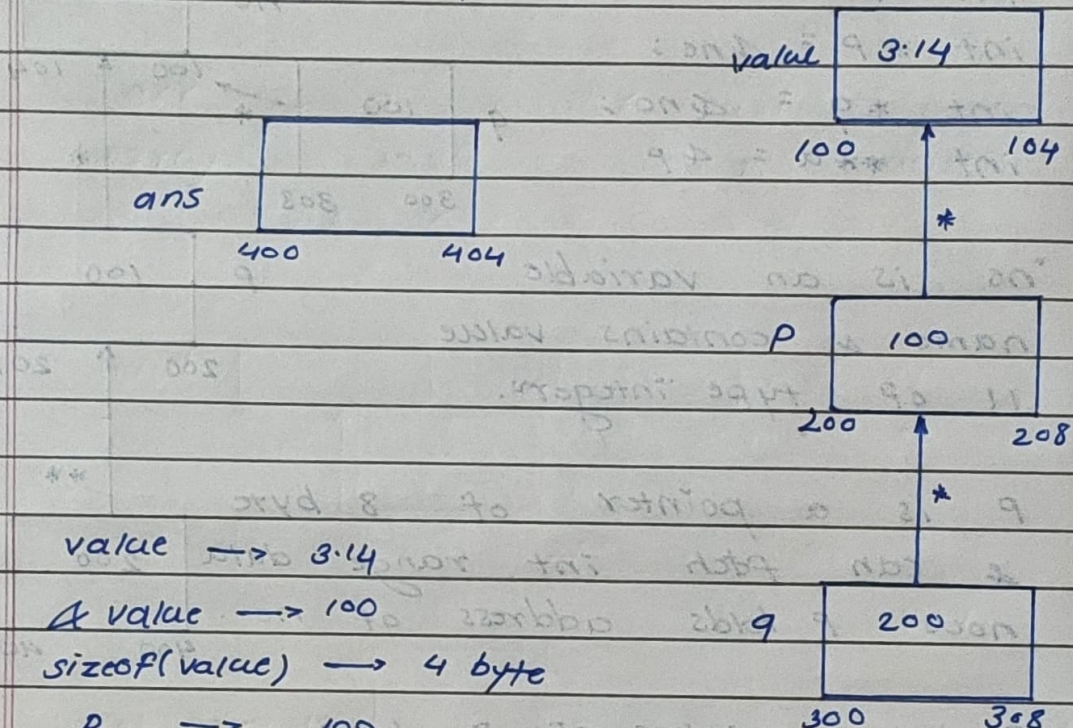 value 3.14
100 104
*
ans
400 404
P 100
200 208
*
value → 3.14
& value → 100
q 200
sizeof(value) → 4 byte
P → 100
300 308